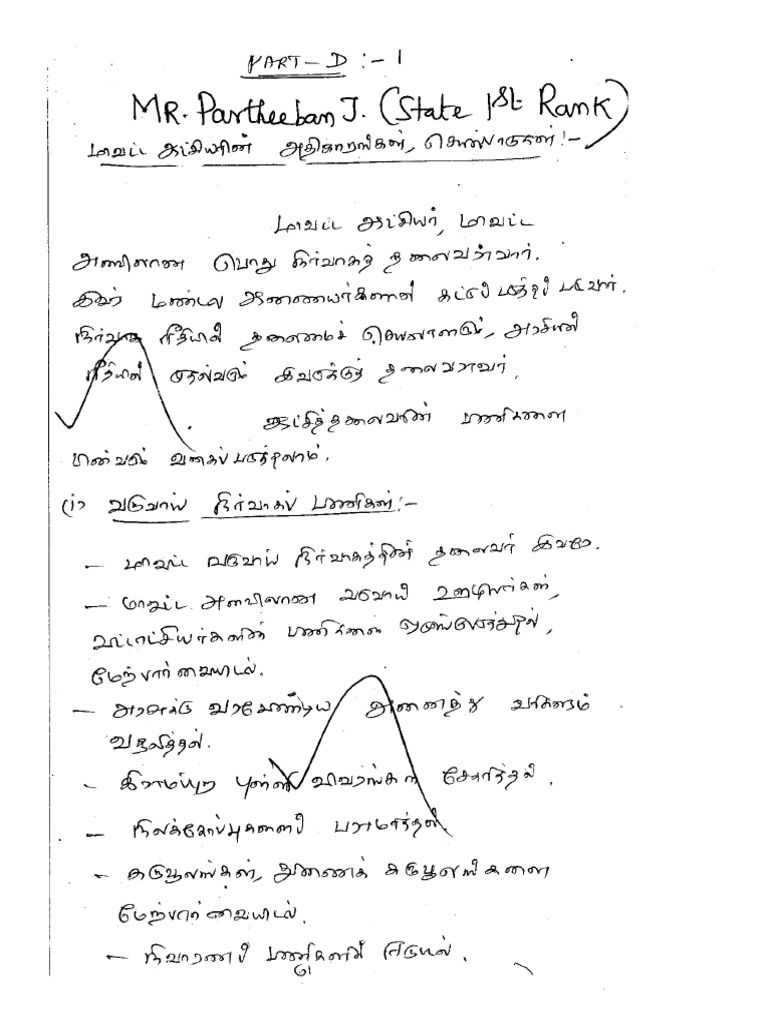 PART-D :- 1
MR. Partheeban J. (State 1st Rank)
மாவட்ட ஆட்சியரின் அதிகாரங்கள், செயல்பாடுகள்:-
மாவட்ட ஆட்சியர், மாவட்ட
அளவிலான பொது நிர்வாகத் தலைவராவார்.
இவர் மண்டல ஆணையர்களால் கட்டுப்படுத்தப்படுவார்.
நிர்வாக ரீதியில் தலைமைச் செயலாளரும், அரசியல்
ரீதியில் முதல்வரும் இவருக்குத் தலைவராவர்.
ஆட்சித்தலைவரின் பணிகளை
பின்வரும் வகைப்படுத்தலாம்.
(i) வருவாய் நிர்வாகப் பணிகள்:-
- மாவட்ட வருவாய் நிர்வாகத்தின் தலைவர் இவரே.
- மாவட்ட அளவிலான வருவாய் ஊழியர்கள்,
வட்டாட்சியர்களின் பணிகளை ஒருங்கிணைத்தல்,
மேற்பார்வையிடல்.
- அரசுக்கு வரவேண்டிய அனைத்து வரிகளும்
வசூலித்தல்.
- கிராமப்புற புள்ளி விவரங்கள் சேகரித்தல்.
- நிலக்கோப்புகளைப் பராமரித்தல்.
- கருவூலங்கள், துணைக் கருவூலங்களை
மேற்பார்வையிடல்.
- நிவாரணப் பணிகளில் ஈடுபடல்.